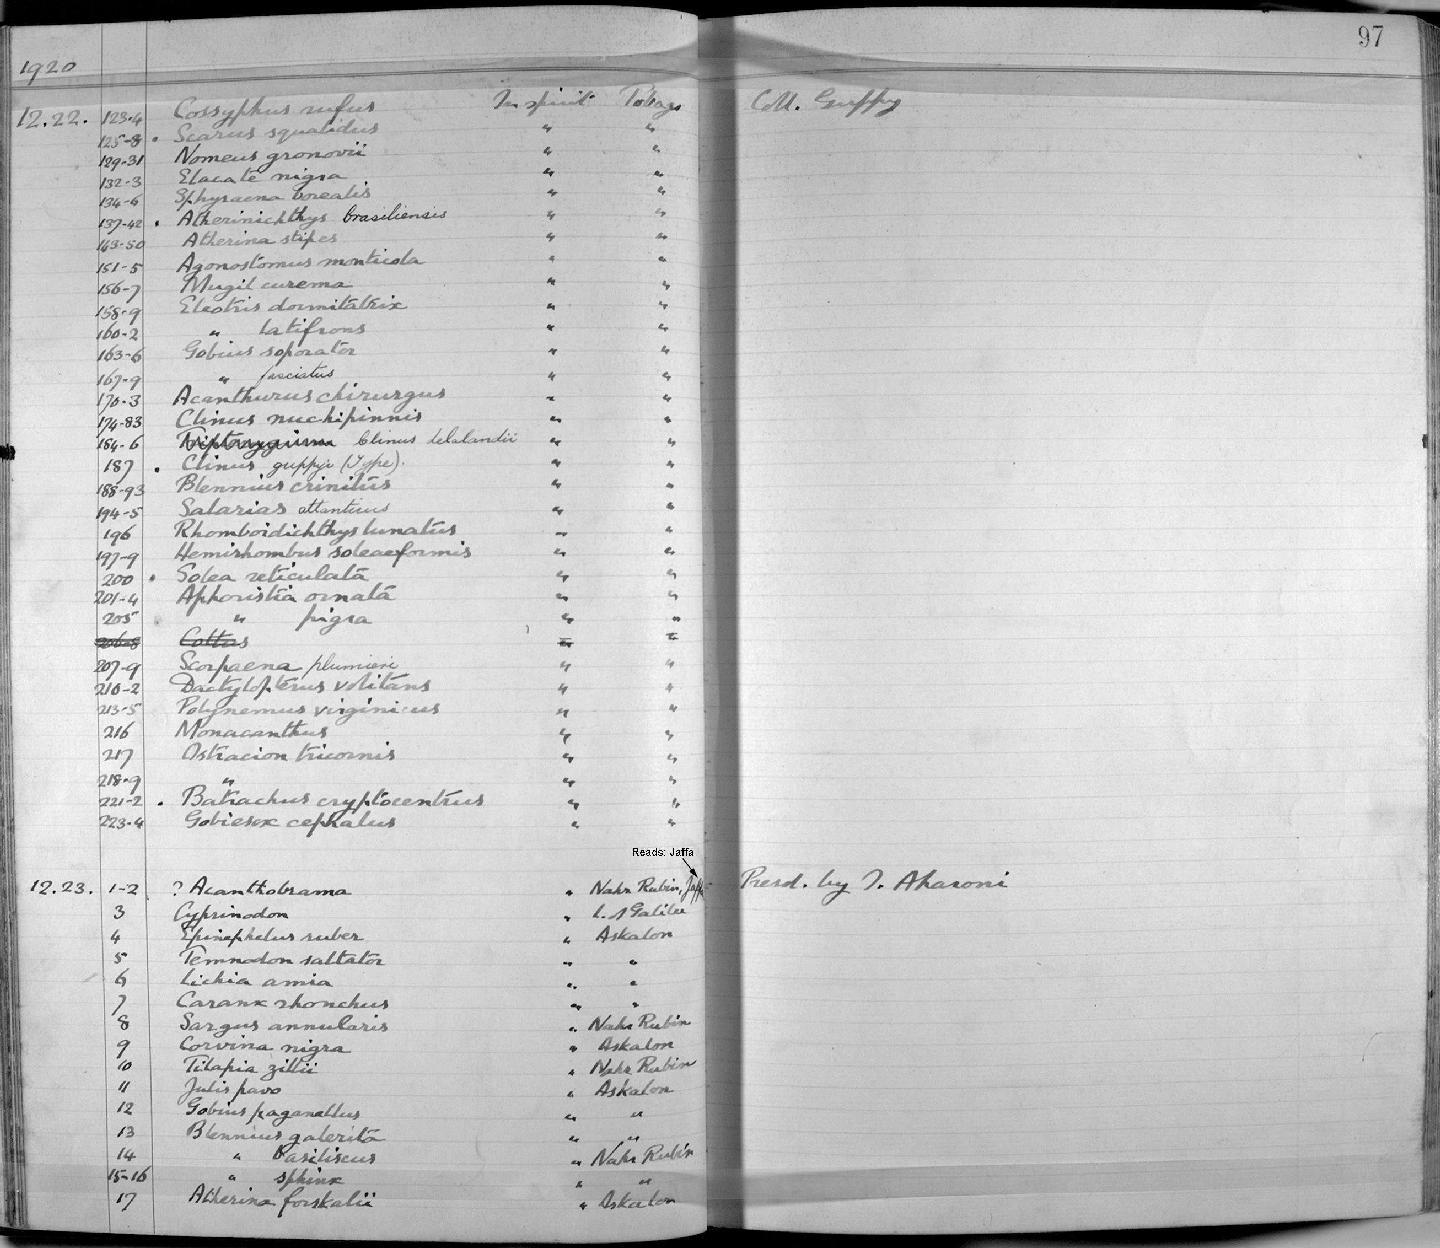 97
1920
12.22. 123-4 Cossyphus rufus In spirit Tobago Coll. Guppy
125-8 . Scarus squalidus " "
129-31 Nomeus gronovii " "
132-3 Elacate nigra " "
134-6 Sphyraena borealis " "
137-42 . Atherinichthys brasiliensis " "
143-50 Atherina stipes " "
151-5 Agonostomus monticola " "
156-7 Mugil curema " "
158-9 Eleotris dormitatrix " "
160-2 " latifrons " "
163-6 Gobius soporator " "
167-9 " fasciatus " "
170-3 Acanthurus chirurgus " "
174-83 Clinus nuchipinnis " "
184-6 Tripterygium Clinus delalandii " "
187 . Clinus guppyi (Type). " "
188-93 Blennius crinitus " "
194-5 Salarias atlanticus " "
196 Rhomboidichthys lunatus " "
197-9 Hemirhombus soleaeformis " "
200 . Solea reticulata " "
201-4 Aphoristia ornata " "
205 " pigra " "
Cottus " "
207-9 Scorpaena plumieri " "
210-2 Dactylopterus volitans " "
213-5 Polynemus virginicus " "
216 Monacanthus " "
217 Ostracion tricornis " "
218-9 " " "
221-2 . Batrachus cryptocentrus " "
223-4 Gobiesox cephalus " "
Reads: Jaffa
12.23. 1-2 ? Acanthobrama " Nahr Rubin, Jaffa Presd. by I. Aharoni
3 Cyprinodon " L. of Galilee
4 Epinephelus ruber " Askalon
5 Temnodon saltator " "
6 Lichia amia " "
7 Caranx rhonchus " "
8 Sargus annularis " Nahr Rubin
9 Corvina nigra " Askalon
10 Tilapia zillii " Nahr Rubin
11 Julis pavo " Askalon
12 Gobius paganellus " "
13 Blennius galerita " "
14 " basiliscus " Nahr Rubin
15-16 " sphinx " "
17 Atherina forskalii " Askalon